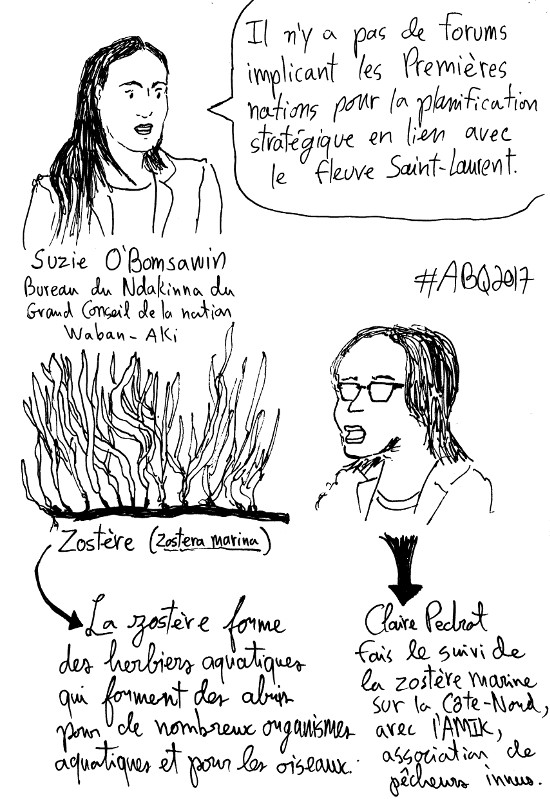 Il n'y a pas de forums
implicant les Premières
nations pour la planification
stratégique en lien avec
le fleuve Saint-Laurent.
Suzie O'Bomsawin
Bureau du Ndakinna du
Grand Conseil de la nation
Waban-Aki
#ABQ2017
Zostère (Zostera marina)
La zostère forme
des herbiers aquatiques
qui forment des abris
pour de nombreux organismes
aquatiques et pour les oiseaux.
Claire Pedrot
fais le suivi de
la zostère marine
sur la Côte-Nord,
avec l'AMIK,
association de
pêcheurs innus.